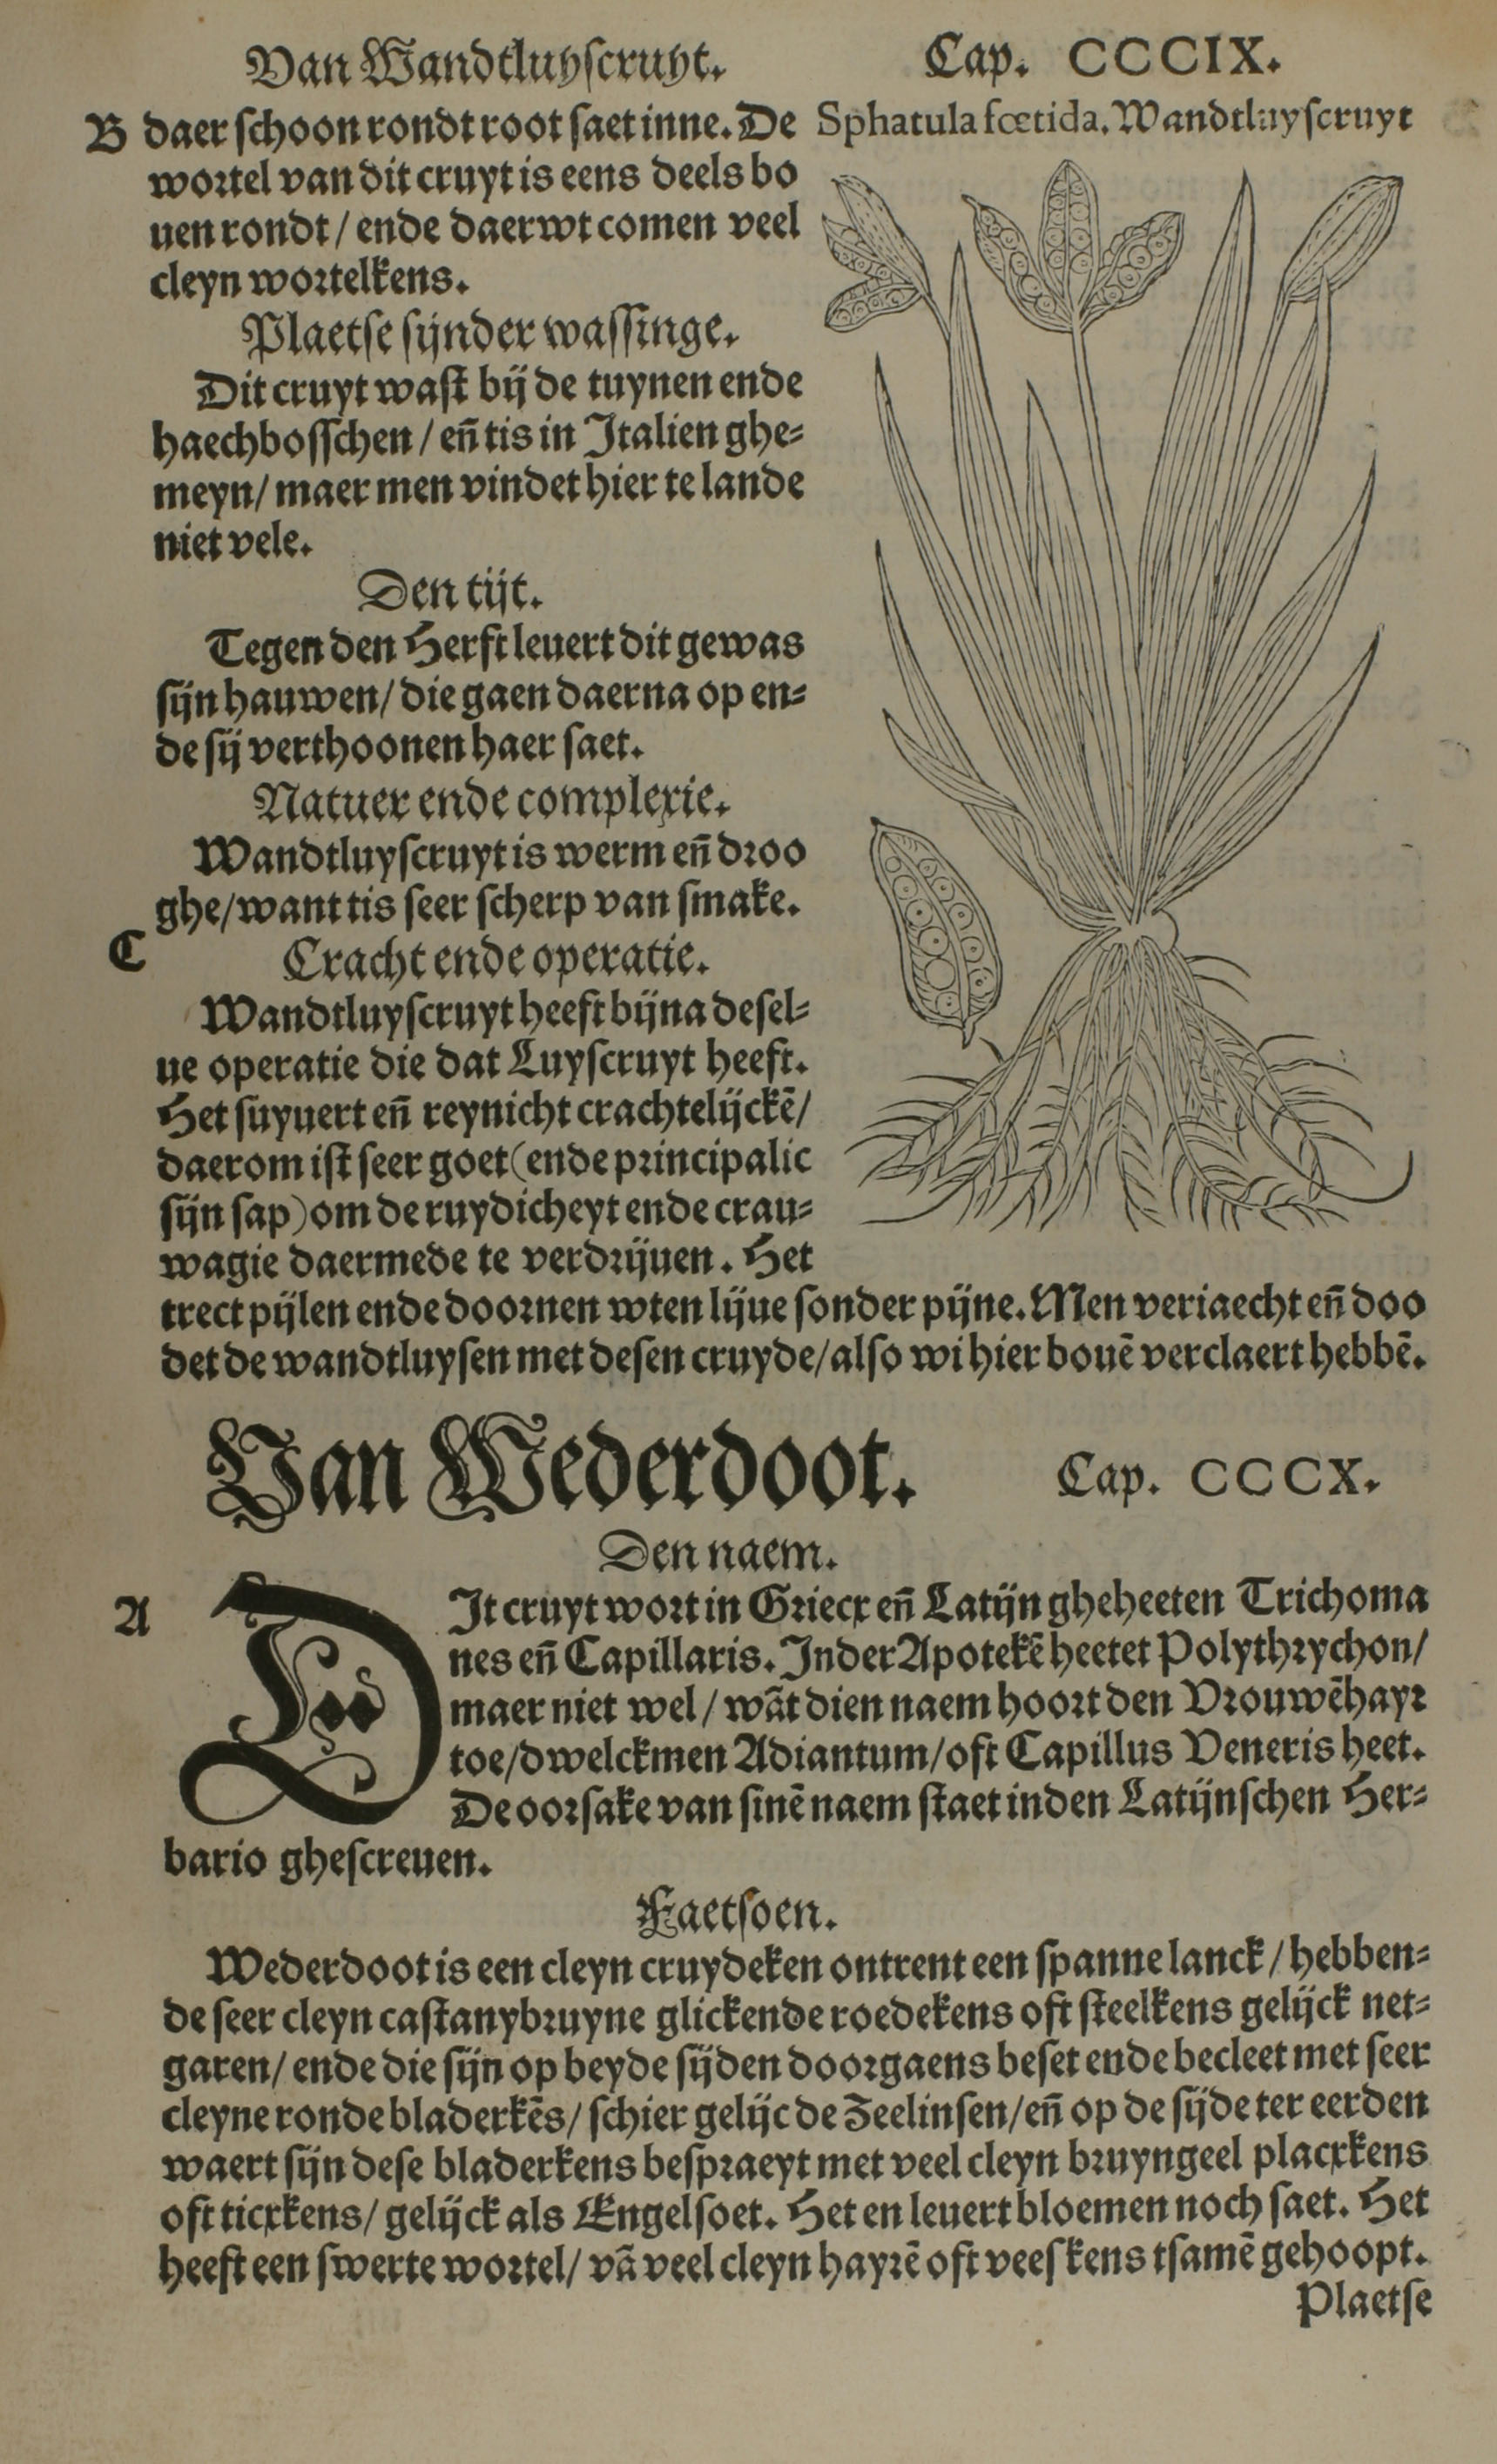 Van Wandtluyſcruyt. Cap. CCCIX.
B daer ſchoon rondt root ſaet inne. De
wortel van dit cruyt is eens deels bo
uen rondt / ende daer wt comen veel
cleyn wortelkens.
Plaetſe ſijnder waſſinge.
Dit cruyt waſt bij de tuynen ende
haechboſſchen / en̄ tis in Italien ghe⸗
meyn / maer men vindet hier te lande
niet vele.
Den tijt.
Tegen den Herfſt leuert dit gewas
ſijn hauwen / die gaen daerna op en⸗
de ſij verthoonen haer ſaet.
Natuer ende complexie.
Wandtluyſcruyt is werm en̄ droo
ghe / want tis ſeer ſcherp van ſmake.
C Cracht ende operatie.
Wandtluyſcruyt heeft bijna deſel⸗
ue operatie die dat Luyſcruyt heeft.
Het ſuyuert en̄ reynicht crachtelijckē /
daerom iſt ſeer goet (ende principalic
ſijn ſap) om de ruydicheyt ende crau⸗
wagie daermede te verdrijuen. Het
trect pijlen ende doornen wten lijue ſonder pijne. Men veriaecht en̄ doo
det de wandtluyſen met deſen cruyde / alſo wi hier bouē verclaert hebbē.
Sphatula fœtida. Wandtluyſcruyt
Van Wederdoot. Cap. CCCX.
Den naem.
A DIt cruyt wort in Griecx en̄ Latijn gheheeten Trichoma
nes en̄ Capillaris. Inder Apotekē heetet Polythrychon /
maer niet wel / wāt dien naem hoort den Vrouwēhayr
toe / dwelckmen Adiantum / oft Capillus Veneris heet.
De oorſake van ſinē naem ſtaet inden Latijnſchen Her⸗
bario gheſcreuen.
Faetſoen.
Wederdoot is een cleyn cruydeken ontrent een ſpanne lanck / hebben⸗
de ſeer cleyn caſtanybruyne glickende roedekens oft ſteelkens gelijck net⸗
garen / ende die ſijn op beyde ſijden doorgaens beſet ende becleet met ſeer
cleyne ronde bladerkēs / ſchier gelijc de Zeelinſen / en̄ op de ſijde ter eerden
waert ſijn deſe bladerkens beſpraeyt met veel cleyn bruyngeel placxkens
oft ticxkens / gelijck als Engelſoet. Het en leuert bloemen noch ſaet. Het
heeft een ſwerte wortel / vā veel cleyn hayrē oft veeſkens tſamē gehoopt.
Plaetſe